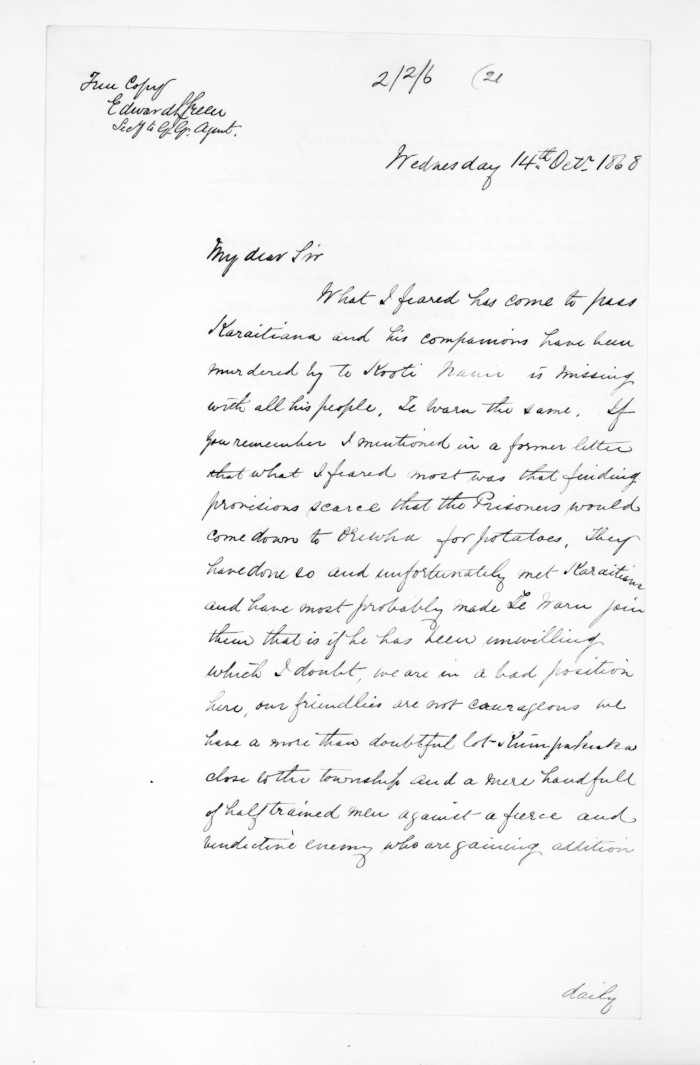 True Copy
Edward L Green
Secy to Gl. Gt. Agent.
2/2/6 (21
Wednesday 14th Octr 1868
My dear Sir
What I feared has come to pass
Karaitiana and his companions have been
murdered by te Kooti is missing
with all his people, Te Waru the same. If
you remember I mentioned in a former letter
that what I feared most was that finding
provisions scarce that the Prisoners would
come down to for potatoes, They
have done so and unfortunately met Karaitiana
and have most probably made Te Waru join
them that is if he has been unwilling
which I doubt, we are in a bad position
here, our friendlies are not courageous we
have a more than doubtful lot
close to the township and a mere handfull
of half trained men against a fierce and
vindictive enemy who are gaining addition
daily